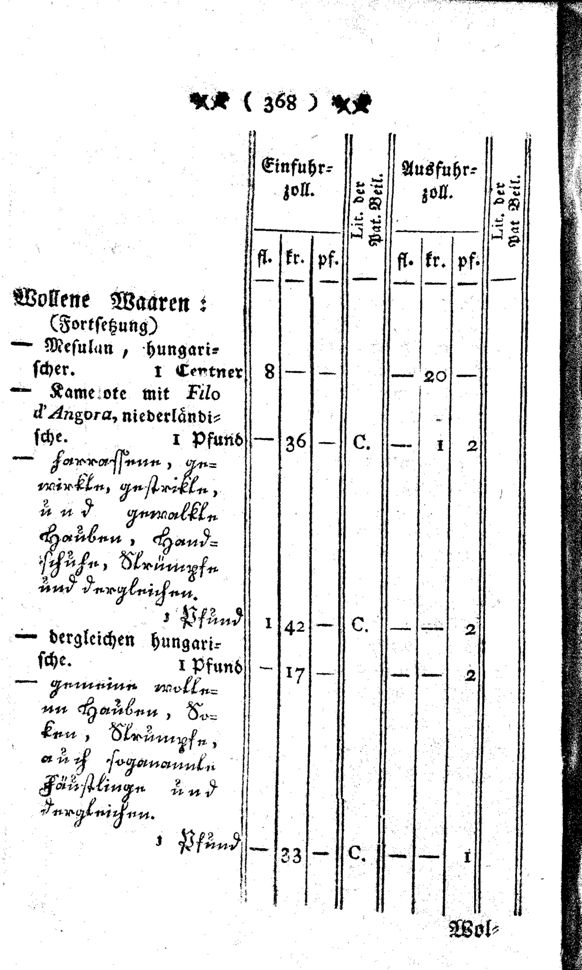 ( 368 )
Einfuhr=
zoll.
Lit. der
Pat. Beil.
Ausfuhr=
zoll.
Lit. der
Pat Beil.
fl. kr. pf. fl. kr. pf.
Wollene Waaren:
(Fortsetzung)
— Mesulan, hungari=
scher. 1 Centner 8 — — — 20 —
— Kamelote mit Filo
d'Angora, niederländi=
sche. 1 Pfund — 36 — C. — 1 2
— harrassene, ge=
wirkte, gestrikte,
und gewalkte
Hauben, Hand=
schuhe, Strümpfe
und dergleichen.
1 Pfund 1 42 — C. — — 2
— dergleichen hungari=
sche. 1 Pfund — 17 — — — 2
— gemeine wolle=
ne Hauben, So=
ken, Strümpfe,
auch sogenannte
Fäustlinge und
dergleichen.
1 Pfund — 33 — C. — — 1
Wol=